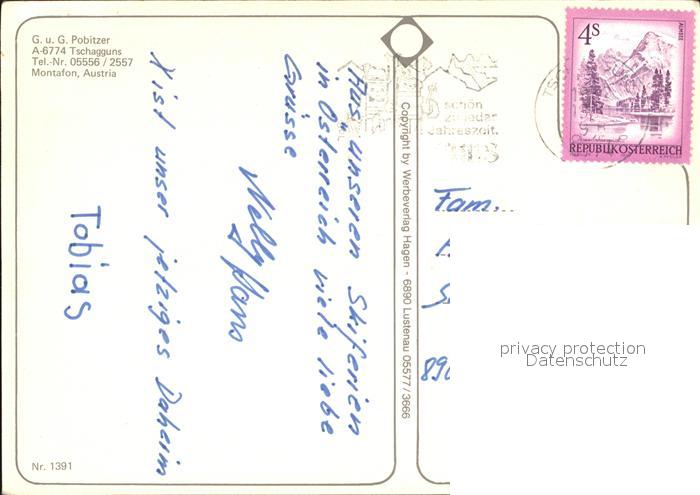 G. u. G. Pobitzer
A-6774 Tschagguns
Tel.-Nr. 05556 / 2557
Montafon, Austria
Aus unseren Skiferien
in Österreich viele liebe
Grüsse
Nelly Hans
X ist unser jetziges Daheim
Tobias
Nr. 1391
Copyright by Werbeverlag Hagen - 6890 Lustenau 05577/3666
schön
zu jeder
Jahreszeit.
4S
ALMSEE
REPUBLIK ÖSTERREICH
Fam.
890
privacy protection
Datenschutz